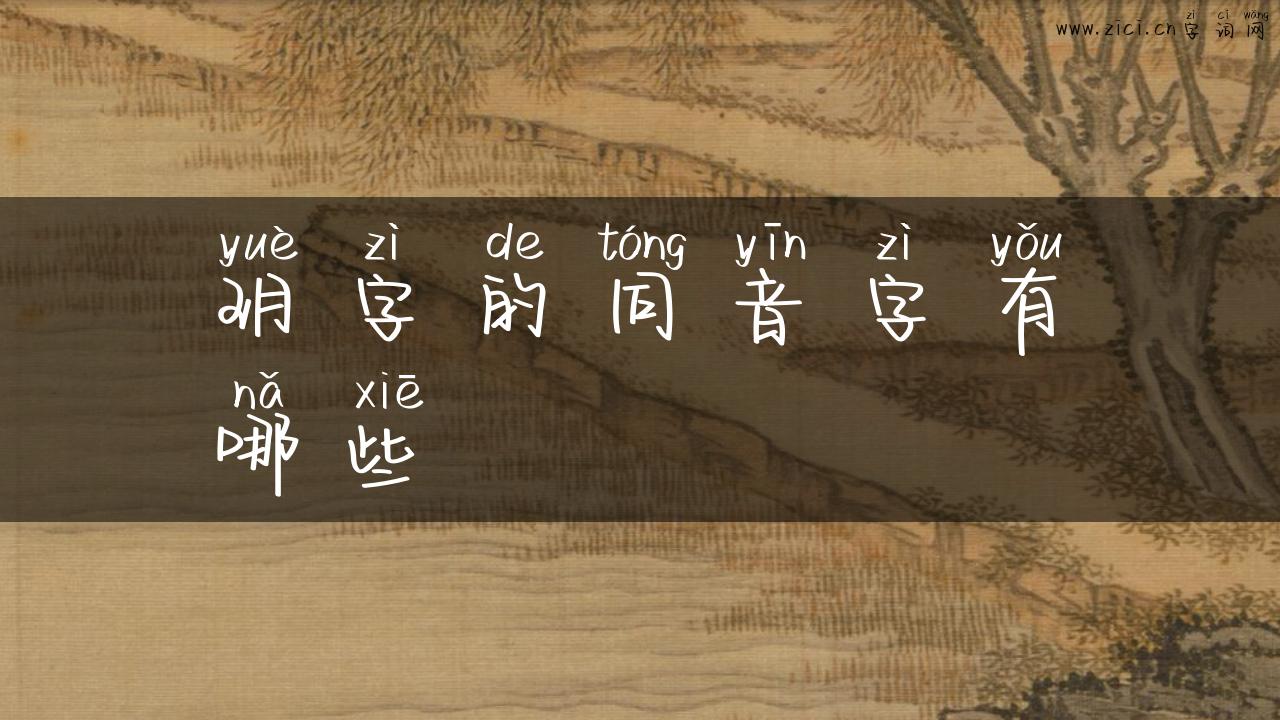 zì cí wǎng
www.zici.cn字词网
yuè zì de tóng yīn zì yǒu
玥字的同音字有
nǎ xiē
哪些